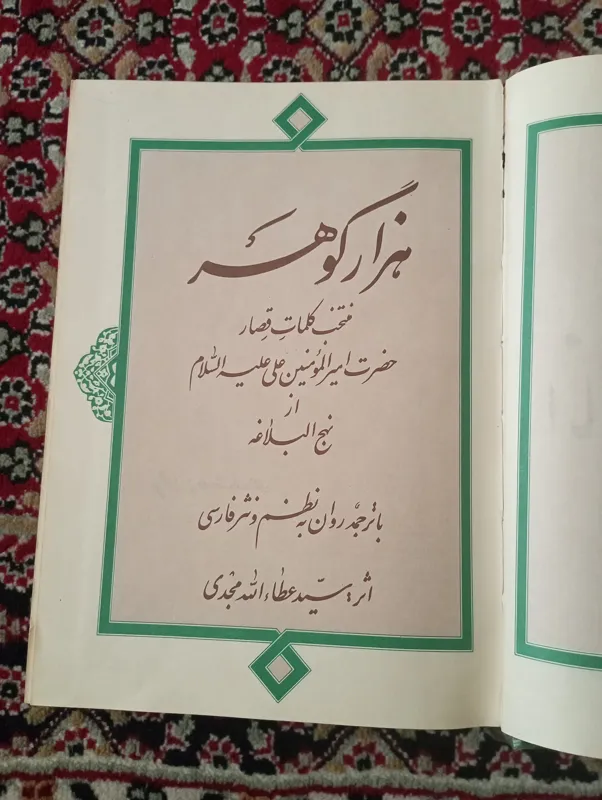 هزار گوهر
منتخب کلماتِ قِصار
حضرت امیرالمؤمنین علی علیه السّلام
از
نهج البلاغه
با ترجمهٔ روان به نظم و نثر فارسی
اثر: سیّد عطاءالله مجدی